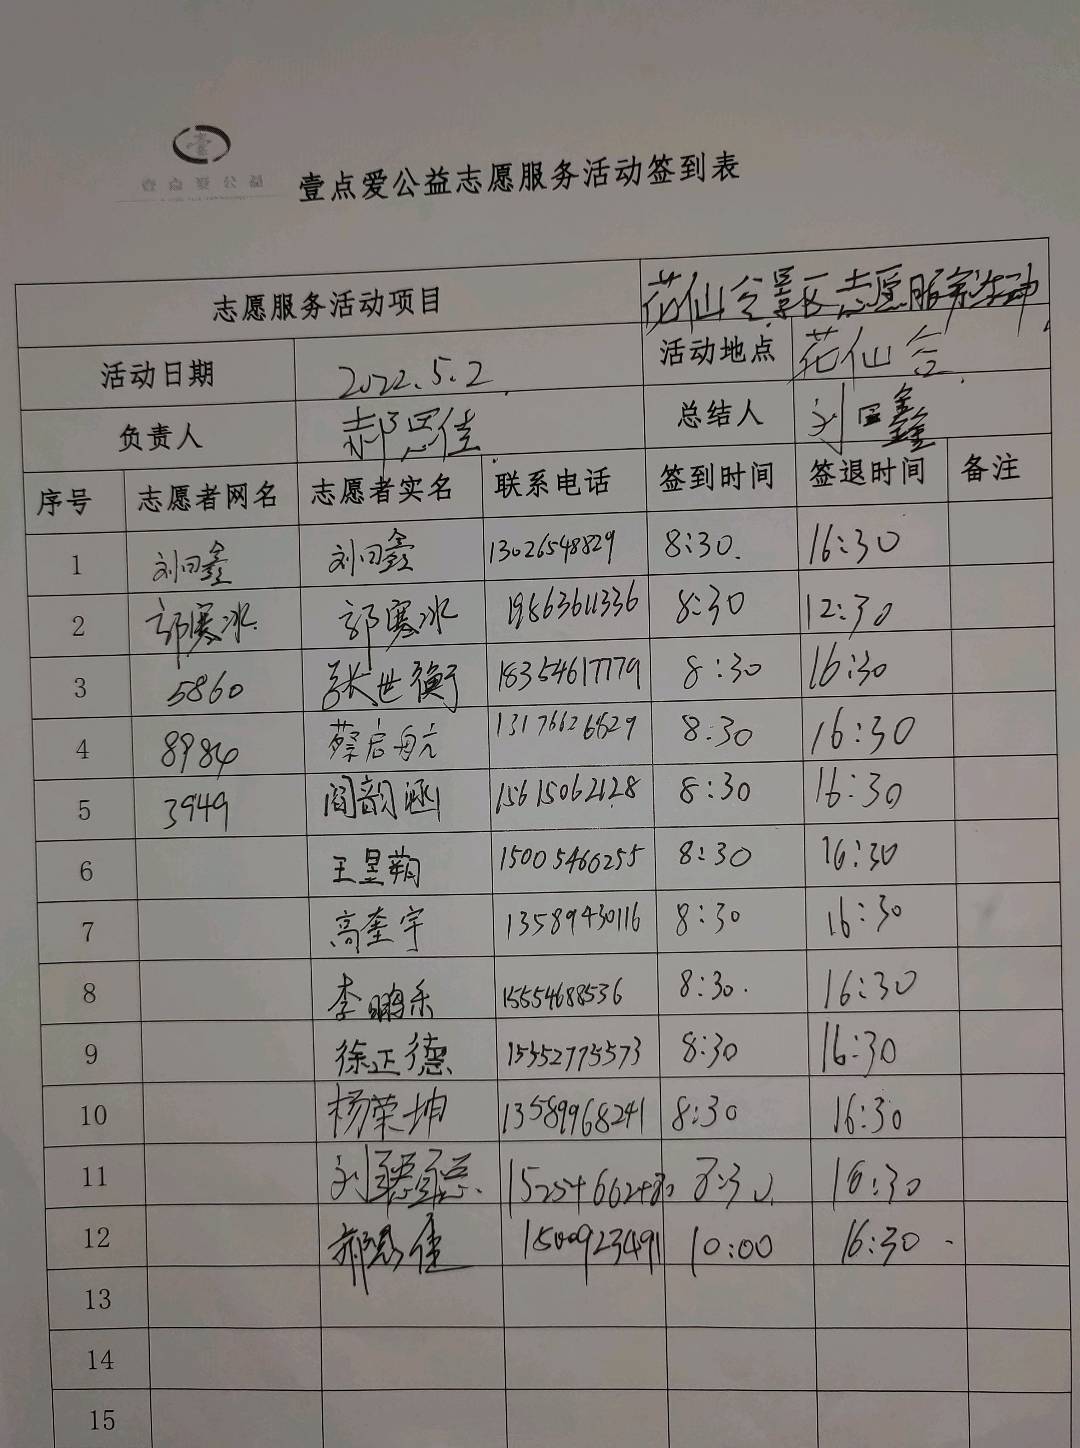 壹点爱公益
壹点爱公益志愿服务活动签到表
志愿服务活动项目 花仙谷景区志愿服务活动
活动日期 2022.5.2 活动地点 花仙谷
负责人 郝思佳 总结人 刘曰鑫
序号 志愿者网名 志愿者实名 联系电话 签到时间 签退时间 备注
1 刘曰鑫 刘曰鑫 13026548829 8:30. 16:30
2 郭寒冰 郭寒冰 19863611336 8:30 12:30
3 5860 张世衡 18354617779 8:30 16:30
4 8984 蔡启航 13176626629 8:30 16:30
5 3949 阎韵涵 15615062128 8:30 16:30
6 王昱蒴 15005460255 8:30 16:30
7 高奎宇 13589430116 8:30 16:30
8 李鹏禾 15554688536 8:30. 16:30
9 徐正德 15352775573 8:30 16:30
10 杨荣坤 13589968241 8:30 16:30
11 刘 8:30 16:30
12 郝思佳 1500923491 10:00 16:30
13
14
15